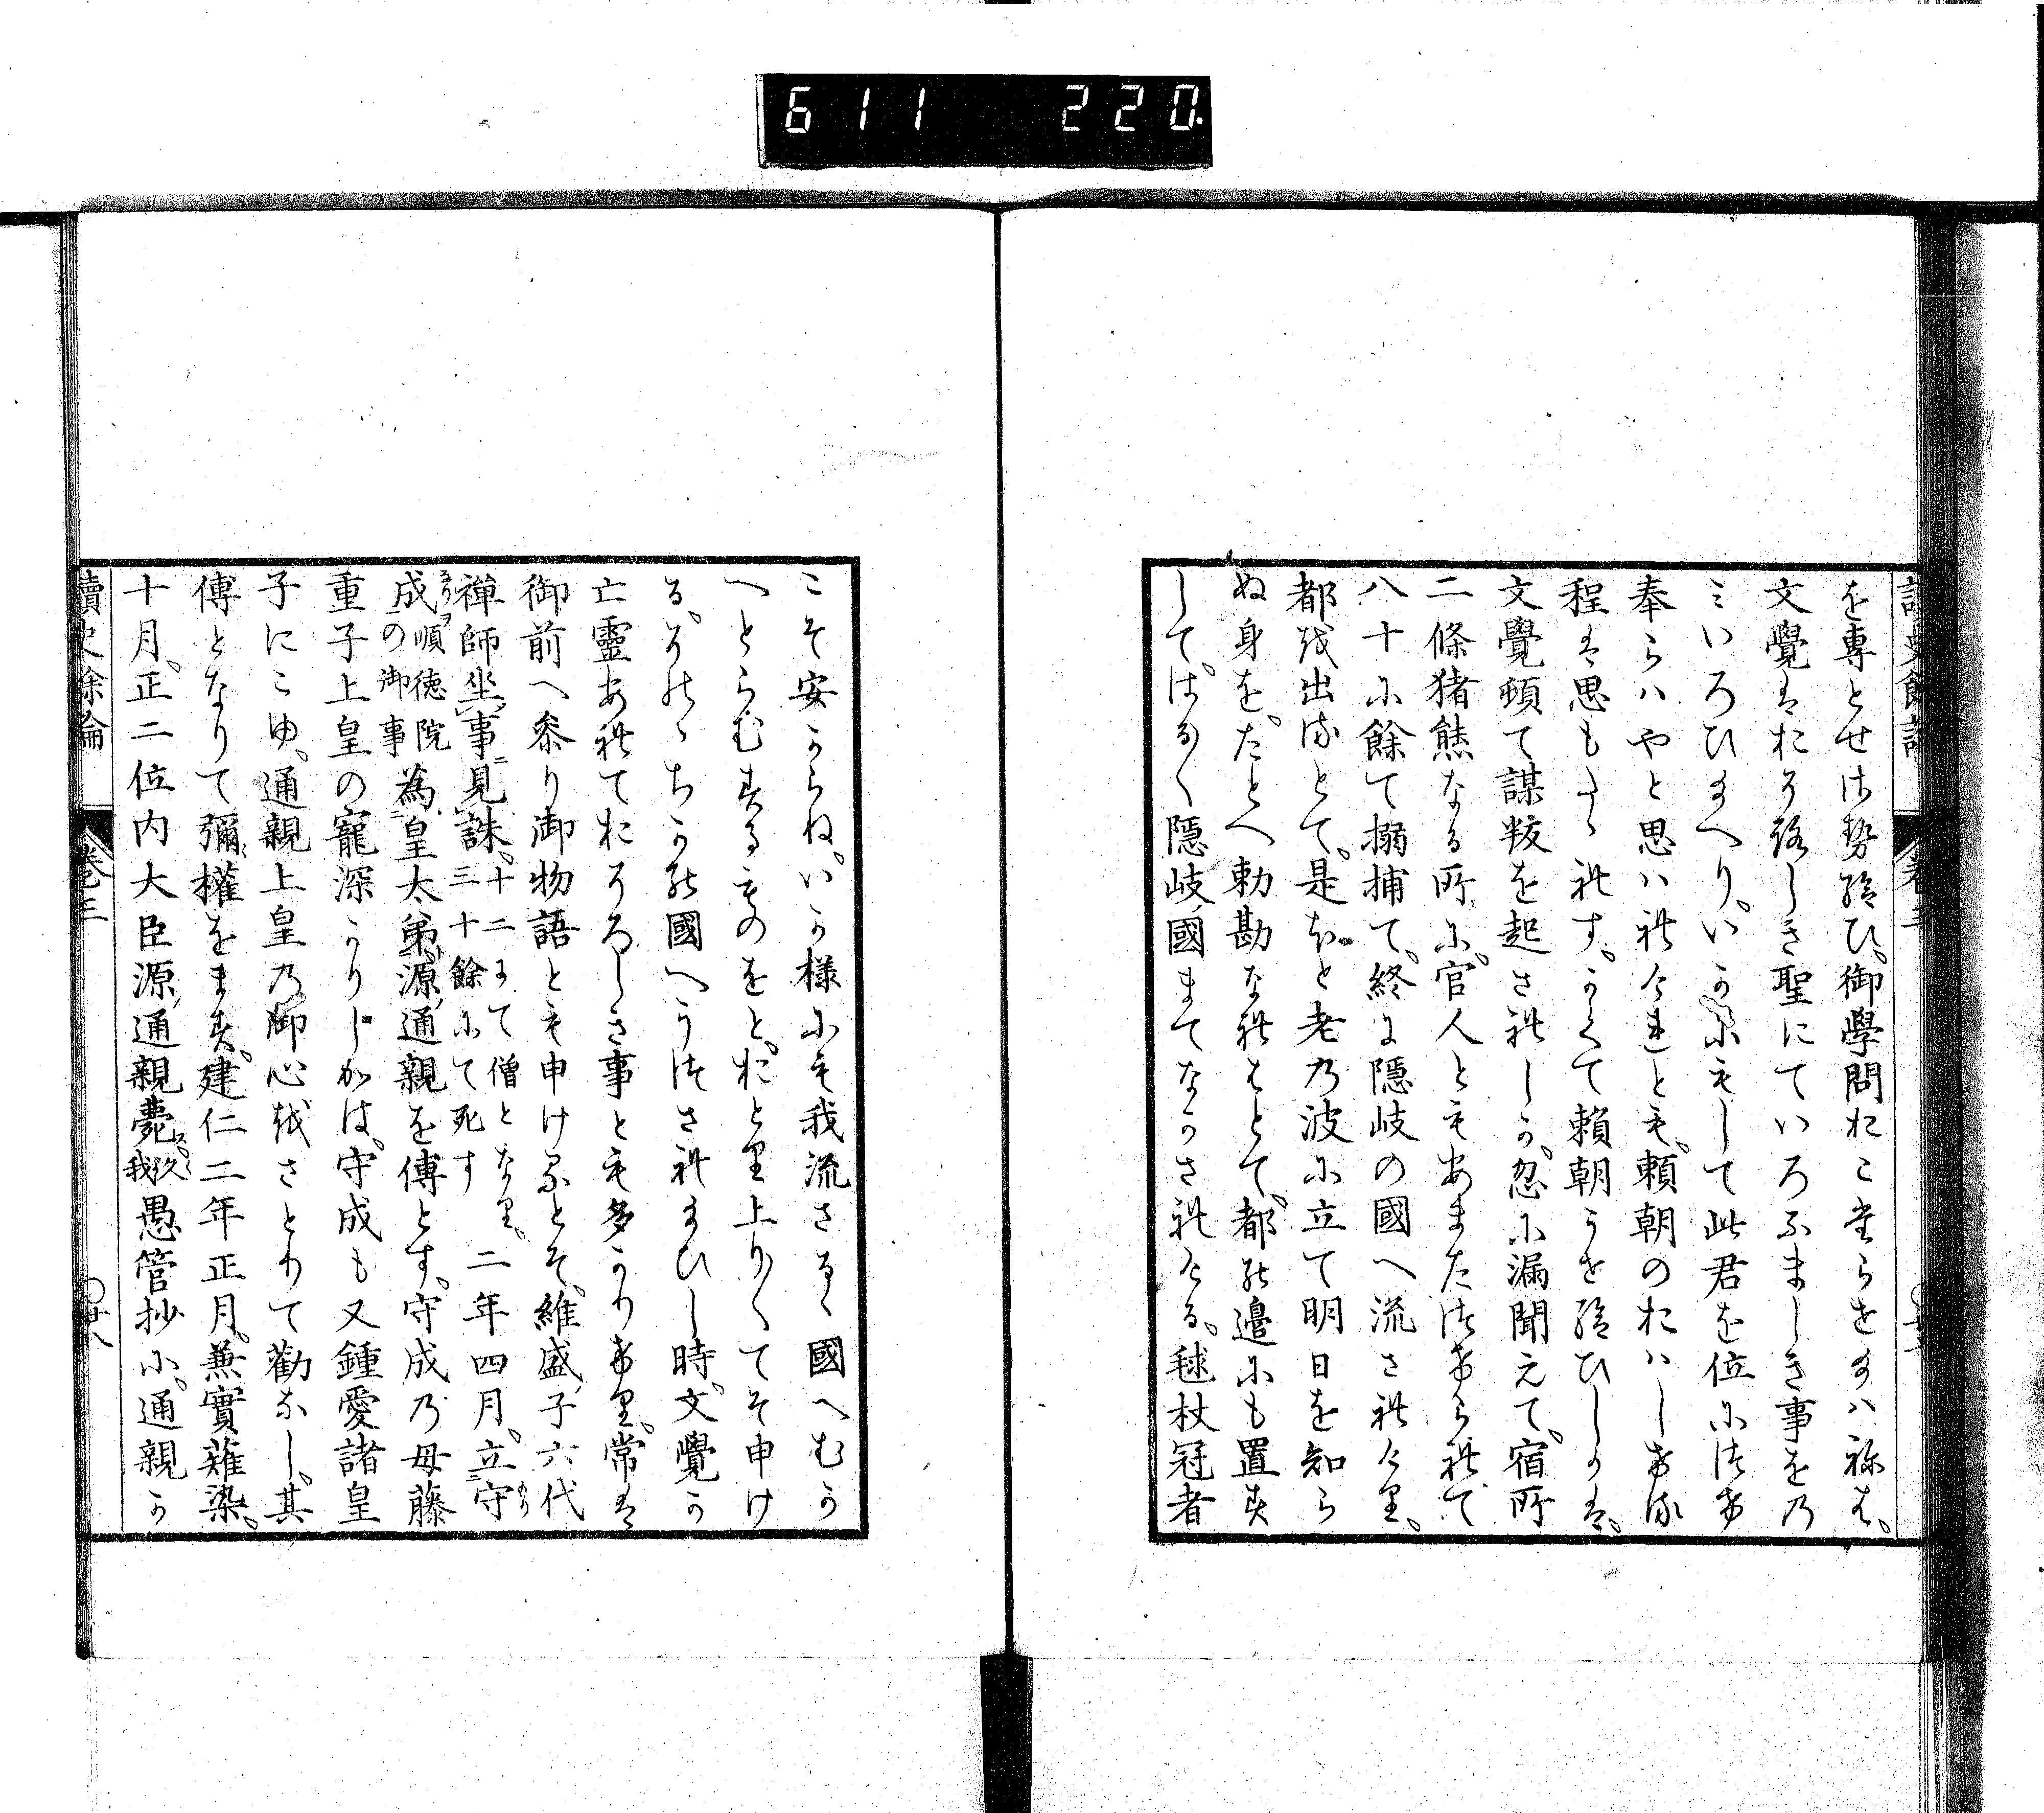 611 220
を專とせさせ給ひ。御學問おこたらせ玉ハねは。
文覺はおそろしき聖にていろふましき事をの
ミいろひ玉へり。いかにもして此君を位につけ
奉らハやと思ハれけれとも。頼朝のおハしける
程は思もたゝれす。かくて頼朝うせ給ひしかは。
文覺頓て謀叛を起されしか。忽に漏聞えて。宿所
二條猪熊なる所に。官人ともあまたつけられて
八十に餘て搦捕て。終に隱岐の國へ流されけり。
都を出るとて。是ほと老の波に立て明日を知ら
ぬ身を。たとへ勅勘なれはとて。都の邊にも置す
して。はる〱隱岐國まてなかされける。毬杖冠者
こそ安からね。いか樣にも我流さるゝ國へむか
へとらむするものをと。おとり上り〱てそ申け
る。そのゝちかの國へうつされ玉ひし時。文覺か
亡靈あれておそろしき事とも多かりけり。常は
御前へ參り御物語とも申けるとそ。維盛子六代
禪師坐事見誅。十二にて僧となり。三十餘にて死す 二年四月。立守
成順徳院の御事爲皇太弟。源通親を傅とす。守成の母藤
重子上皇の寵深かりしかは。守成も又鍾愛諸皇
子にこゆ。通親上皇の御心をさとりて勸なし。其
傅となりて彌權をます。建仁二年正月。兼實薙染。
十月。正二位内大臣源通親薨久我愚管抄に。通親か
讀史餘論 卷三 〇廿八